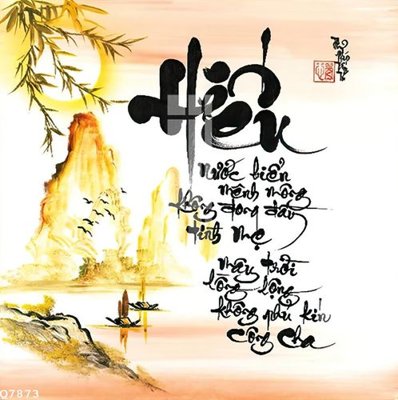 Hiếu
nước biển
mênh mông
không đong đầy
tình mẹ
mây trời
lồng lộng
không phủ kín
công cha
Q7873